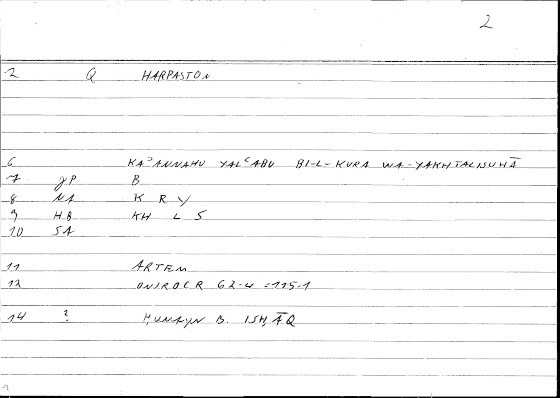 2
2 Q HARPASTON
6 KAʾANNAHU YALʿABU BI-L-KURA WA-YAKHTALISUHĀ
7 JP B
8 NA K R Y
9 HB KH L S
10 SA
11 ARTEM
12 ONIROCR 62-4 =115-1
14 ? ḤUNAYN B. ISḤĀQ